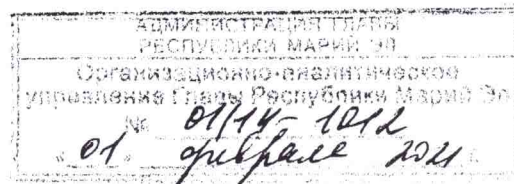 АДМИНИСТРАЦИЯ ГЛАВЫ
РЕСПУБЛИКИ МАРИЙ ЭЛ
Организационно-аналитическое
управление Главы Республики Марий Эл
№ 01/14-1012
«01» февраля 2021 г.